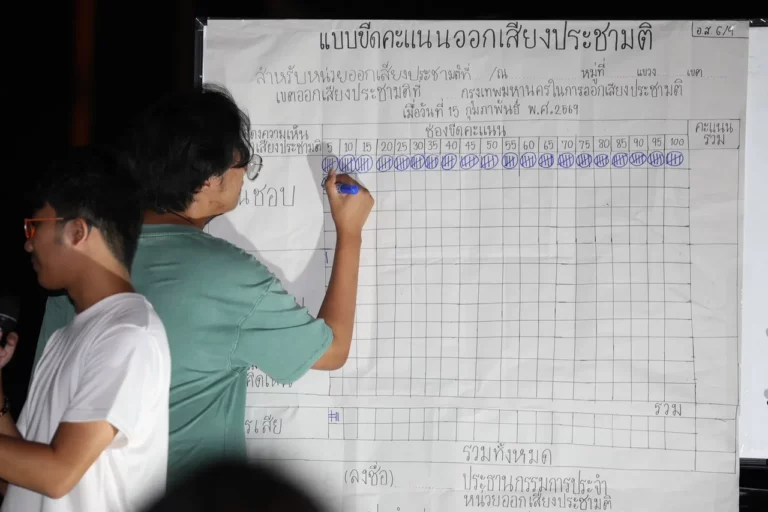 แบบขีดคะแนนออกเสียงประชามติ
อ.ส. ๖/๔
สำหรับหน่วยออกเสียงประชามติที่ /ณ หมู่ที่ แขวง เขต
เขตออกเสียงประชามติที่ กรุงเทพมหานครในการออกเสียงประชามติ
เมื่อวันที่ 15 กุมภาพันธ์ พ.ศ.2569
ช่องขีดคะแนน
คะแนนรวม
5 10 15 20 25 30 35 40 45 50 55 60 65 70 75 80 85 90 95 100
นชอบ
รวม
รเสีย
รวมทั้งหมด
(ลงชื่อ) ประธานกรรมการประจำ
หน่วยออกเสียงประชามติ